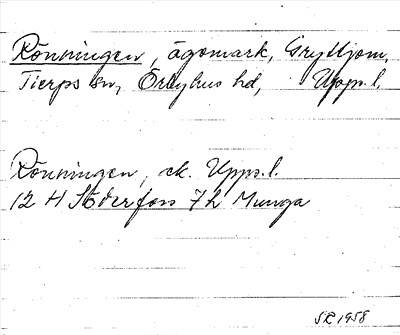 Rönningen, ägomark, Gryttjom,
Tierps sn, Örbyhus hd, Upps. l.
Rönningen, ek. Upps. l.
12 H Söderfors 7h Munga
SR 1958